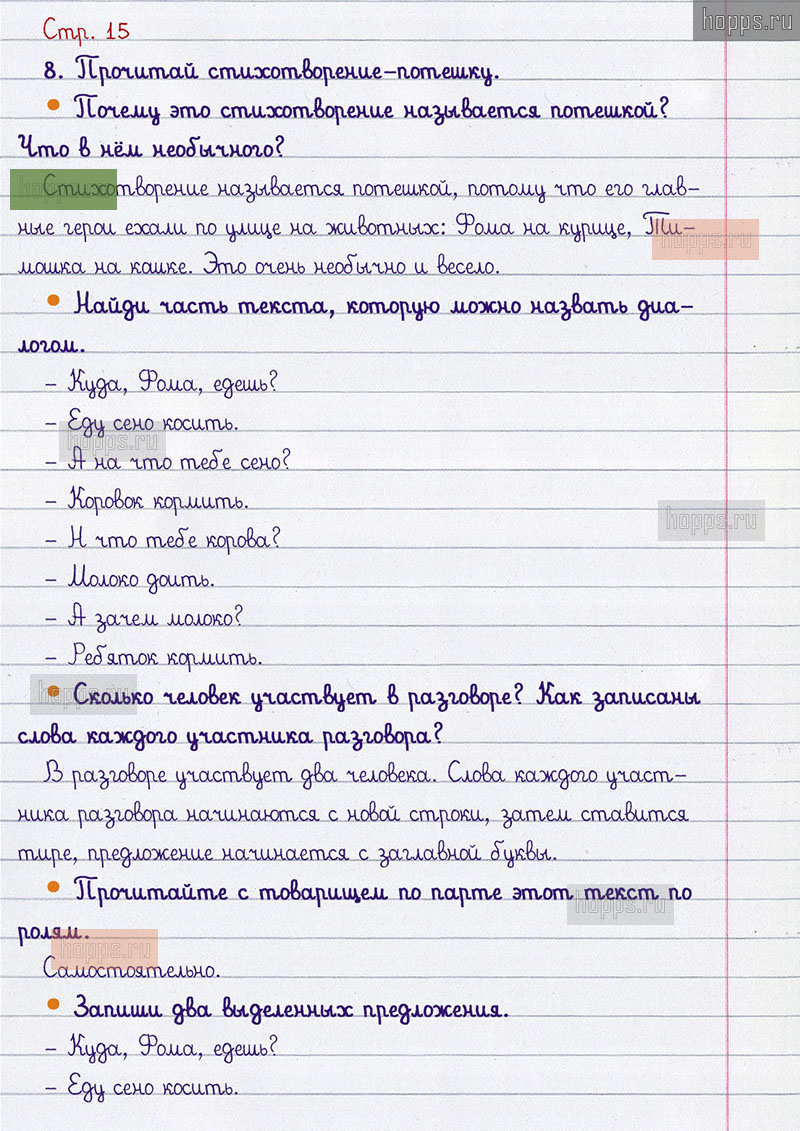 hopps.ru
Стр. 15
8. Прочитай стихотворение-потешку.
• Почему это стихотворение называется потешкой?
Что в нём необычного?
Стихотворение называется потешкой, потому что его глав-
ные герои ехали по улице на животных: Фома на курице, Ти-
мошка на кошке. Это очень необычно и весело.
• Найди часть текста, которую можно назвать диа-
логом.
– Куда, Фома, едешь?
– Еду сено косить.
– А на что тебе сено?
– Коровок кормить.
– Н что тебе корова?
– Молоко доить.
– А зачем молоко?
– Ребяток кормить.
• Сколько человек участвует в разговоре? Как записаны
слова каждого участника разговора?
В разговоре участвует два человека. Слова каждого участ-
ника разговора начинаются с новой строки, затем ставится
тире, предложение начинается с заглавной буквы.
• Прочитайте с товарищем по парте этот текст по
ролям.
Самостоятельно.
• Запиши два выделенных предложения.
– Куда, Фома, едешь?
– Еду сено косить.